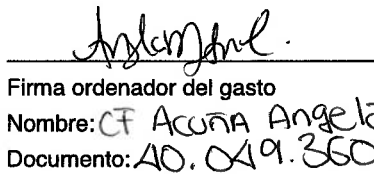 Firma ordenador del gasto
Nombre: CF Acuña Angela
Documento: 40.049.360